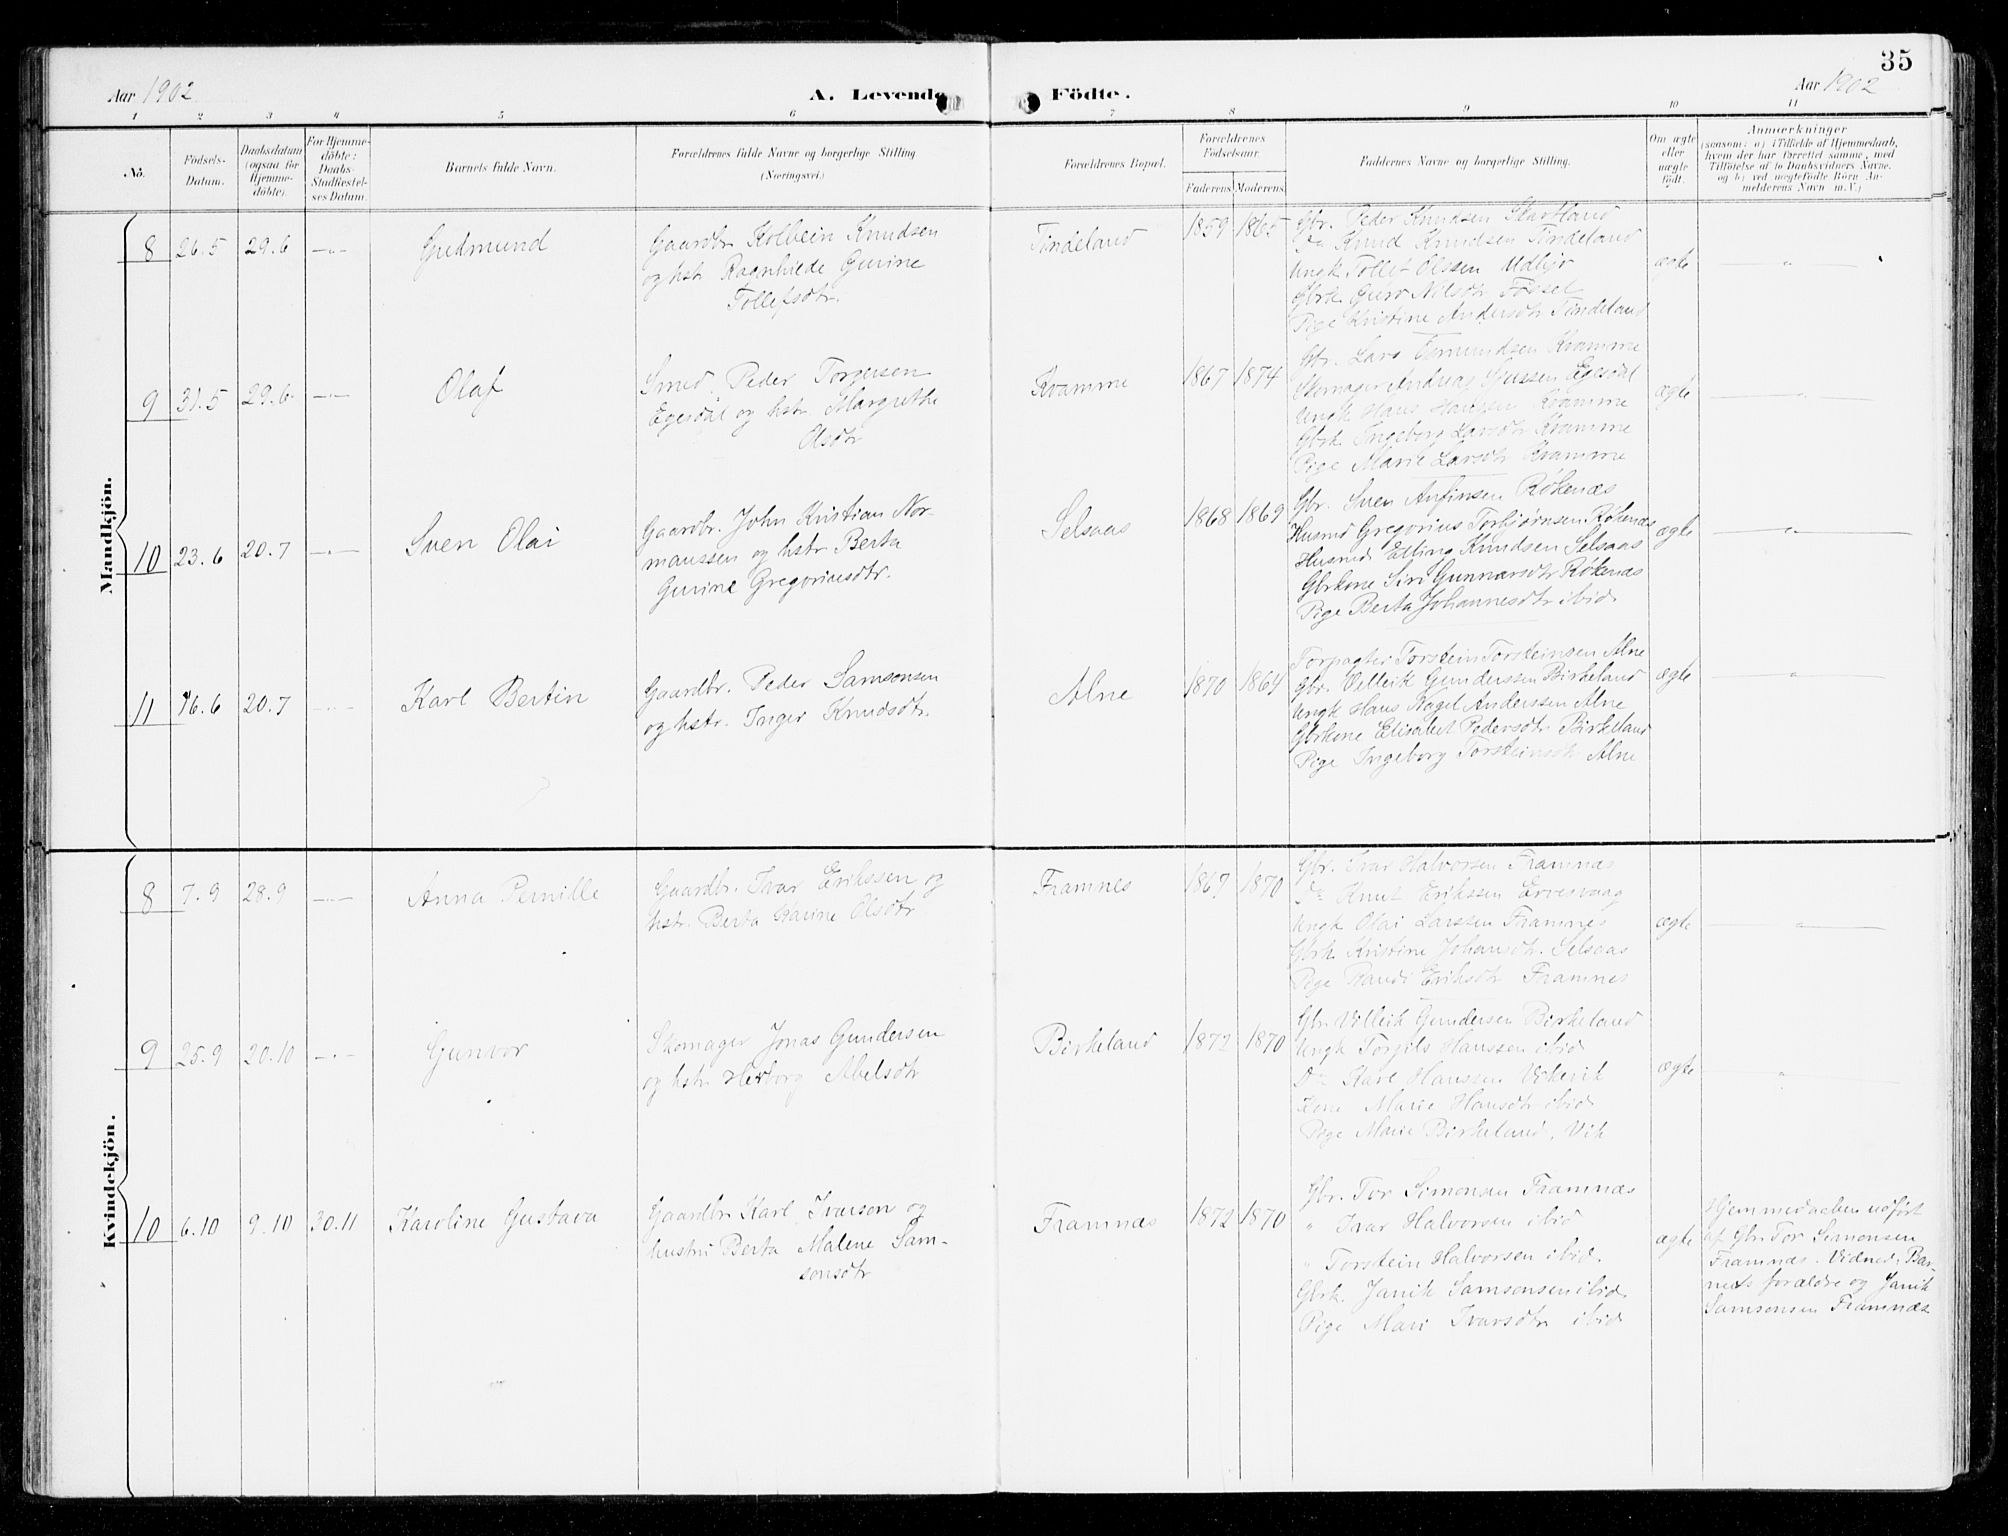 35
Aar 1902
A. Levende Födte.
Aar 1902
1 2 3 4 5 6 7 8 9 10 11
No.
Födsels-
Datum.
Daabsdatum
(ogsaa for
Hjemme-
döbte).
For Hjemme-
döbte:
Daabs-
Stadfæstel-
ses Datum.
Barnets fulde Navn.
Forældrenes fulde Navne og borgerlige Stilling
(Næringsvei.)
Forældrenes Bopæl.
Forældrenes
Födselsaar.
Faderens Moderens
Faddernes Navne og borgerlige Stilling.
Om ægte
eller
uægte
födt.
Anmærkninger
(saasom: a) i Tilfælde af Hjemmedaab,
hvem der har forrettet samme, med
Tilföielse af to Daabsvidners Navne.
og b) ved uægtefödte Börn An-
melderens Navn m.V.)
Mandkjön.
8 26.5 29.6 -"- Gudmund
Gaardbr. Kolbein Knudsen
og hstr. Ragnhilde Gurine
Tollefsdtr.
Tindeland 1859 1865
Gbr. Peder Knudsen Skartland
Do Knud Knudsen Tindeland
Ungk. Tollef Olssen Udbjo
Gbrk. Guro Nilsdtr
Pige Kristine Andersdtr Tindeland
ægte -"-
9 31.5 29.6 -"- Olaf
Smed. Peder Torgersen
Egesdal og hstr. Margrethe
Olsdtr
Kvamme 1867 1874
Gbr. Lars Kvamme
Skomager Andreas Egesdal
Ungk. Hans Hansen Kvamme
Gbrk. Ingeborg Larsdtr Kvamme
Pige Marie Larsdtr Kvamme
ægte -"-
10 23.6 20.7 -"- Sven Olai
Gaardbr. John Kristian Nor-
manssen og hstr Berta
Gurine Gregoriusdtr.
Selsaas 1868 1869
Gbr. Sven Anfinsen Røkenæs
Husmd Gregorius Torbjørnsen Røkenæs
Husmd Elling Knudsen Selsaas
Gbrkone Siri Gunnarsdtr Røkenæs
Pige Berta Johannesdtr ibid
ægte -"-
11 16.6 20.7 -"- Karl Bertin
Gaardbr. Peder Samsonsen
og hstr. Inger Knudsdtr.
Alne 1870 1864
Forpagter Torstein Torsteinsen Alne
Gbr. Villeik Gunderssen Birkeland
Ungk Hans Nagel Anderssen Alne
Gbrkone Elisabet Pedersdtr Birkeland
Pige Ingeborg Torsteinsdtr Alne
ægte -"-
Kvindekjön.
8 7.9 28.9 -"- Anna Pernille
Gaardbr. Ivar Erikssen og
hstr. Berta Karine Olsdtr
Framnes 1867 1870
Gbr. Ivar Halvorsen Framnæs
Do Knut Erikssen Ervesvaag
Ungk Olai Larssen Framnes
Gbrk. Kristine Johansdtr. Selsaas
Pige Randi Eriksdtr Framnes
ægte -"-
9 25.9 20.10 -"- Gunvor
Skomager Jonas Gundersen
og hstr Herborg Abelsdtr
Birkeland 1872 1870
Gbr. Villeik Gundersen Birkeland
Ungk Torgils Hanssen ibid
Do Karl Hanssen Vikevik
Kone Marie Hansdtr ibid
Pige Marie Birkeland, Vik
ægte -"-
10 6.10 9.10 30.11 Karoline Gustava
Gaardbr. Karl Iverson og
hustru Berta Malene Sam-
sonsdtr
Framnæs 1872 1870
Gbr. Tor Simonsen Framnæs
" Ivar Halvorsen ibid
" Torstein Halvorsen ibid.
Gbrk. Janik Samsonsen ibid
Pige Mari Ivarsdtr ibid
ægte
Hjemmedaaben udført
af Gbr. Tor Simonsen
Framnæs. Vidner: Bar-
nets forældre og Janik
Samsonsen Framnæs